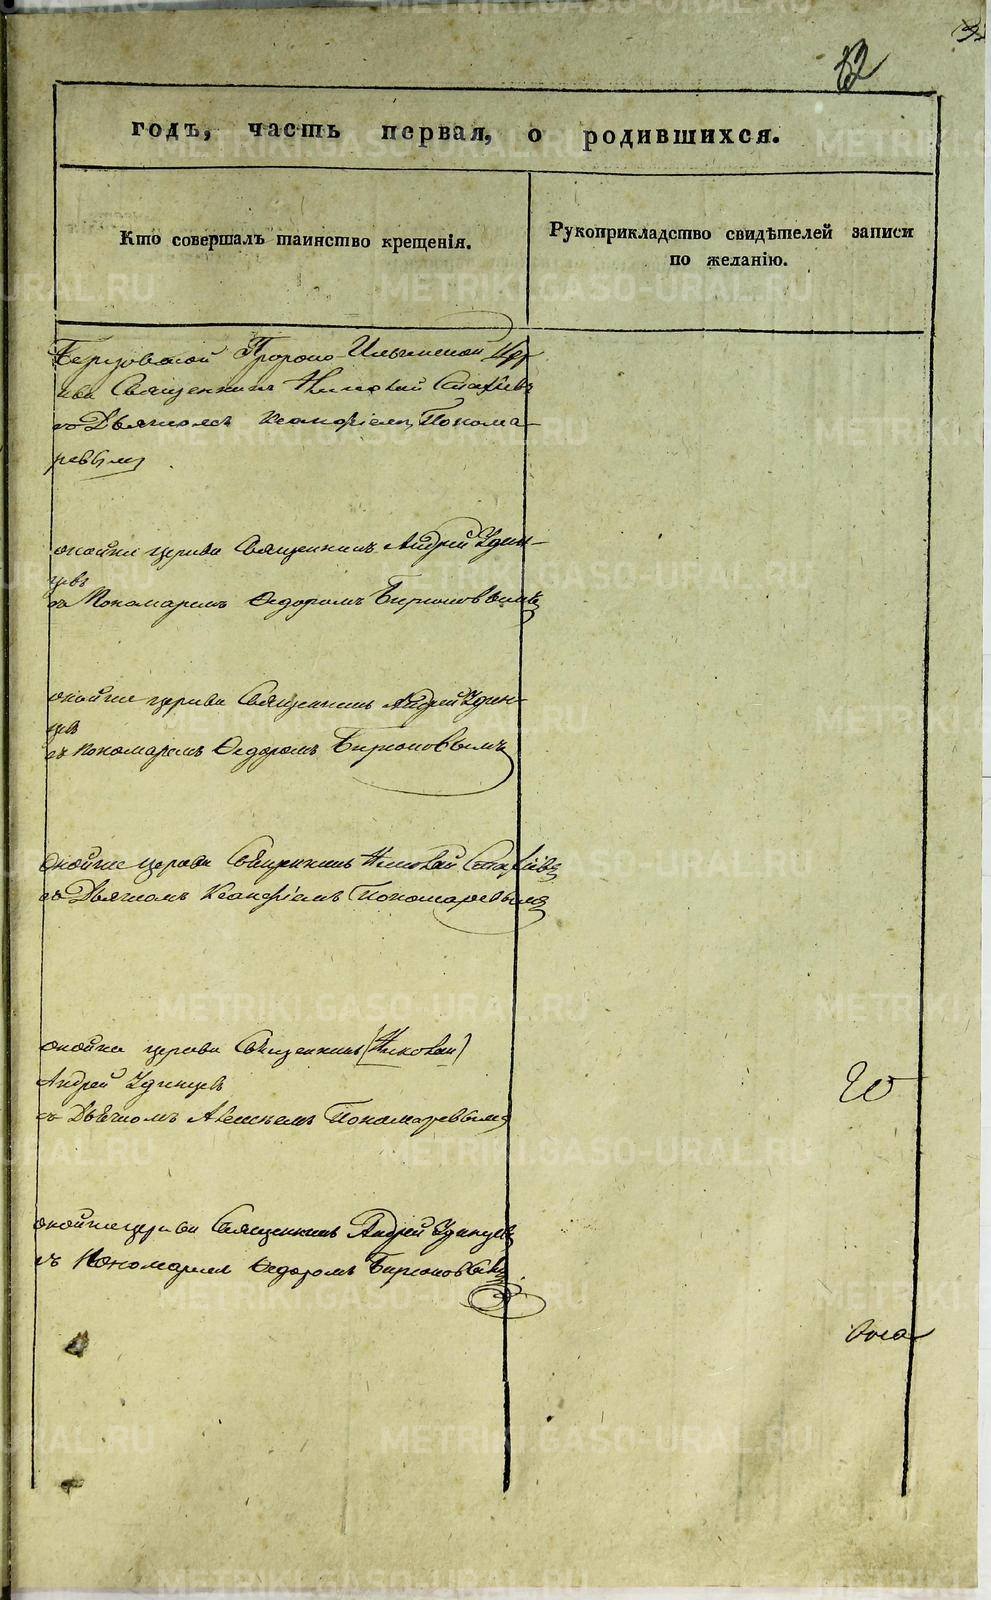 62
годъ, часть первая, о родившихся.
Кто совершалъ таинство крещенія.
Рукоприкладство свидѣтелей записи
по желанію.
Пророко Ильинской Цер
кви Священникъ Николай
съ Дьячкомъ Понома-
ревымъ
онойже церкви Священникъ Андрей Удин-
цевъ
съ Пономаремъ Ѳедоромъ Бирюковымъ
онойже церкви Священникъ Андрей Удин-
цевъ
съ Пономаремъ Ѳедоромъ Бирюковымъ
онойже церкви Священникъ Николай
съ Дьячкомъ Пономаревымъ
онойже церкви Священникъ (Николай)
Андрей Удинцевъ
съ Дьячкомъ Пономаревымъ
онойже церкви Священникъ Андрей Удинцевъ
съ Пономаремъ Ѳедоромъ Бирюковымъ
METRIKI.GASO-URAL.RU